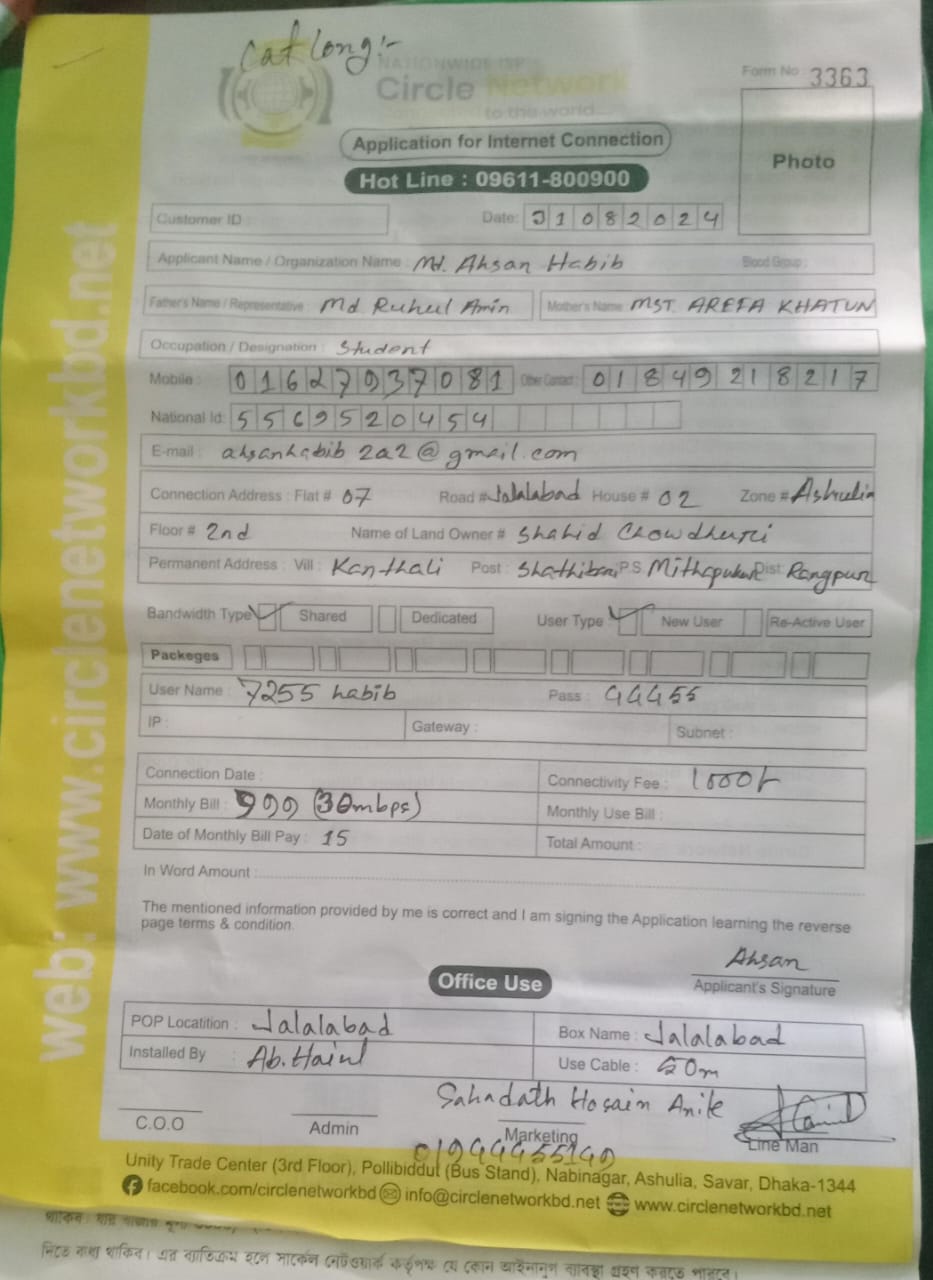 Cat long:-
NATIONWIDE ISP
Circle Network
to the world
Form No : 3363
Application for Internet Connection
Photo
Hot Line : 09611-800900
Customer ID :
Date: 31082024
Applicant Name / Organization Name : Md. Ahsan Habib Blood Group :
Father's Name / Representative : Md Ruhul Amin Mother's Name: MST. AREFA KHATUN
Occupation / Designation : Student
Mobile : 01627937081 Other Contact : 01849218217
National Id: 5569520454
E-mail : ahsanhabib2a2@gmail.com
Connection Address : Flat # 07 Road # Jalalabad House # 02 Zone # Ashulia
Floor # 2nd Name of Land Owner # Shahid Chowdhuri
Permanent Address : Vill : Kanthali Post : Shathibari P.S. Mithapukur Dist: Rangpur
Bandwidth Type Shared Dedicated User Type : New User Re-Active User
Packeges
User Name : 7255 habib Pass : 44455
IP : Gateway : Subnet :
Connection Date : Connectivity Fee : 1000/-
Monthly Bill : 999 (30mbps) Monthly Use Bill :
Date of Monthly Bill Pay : 15 Total Amount :
In Word Amount :
The mentioned information provided by me is correct and I am signing the Application learning the reverse
page terms & condition.
Ahsan
Applicant's Signature
Office Use
POP Locatition : Jalalabad Box Name : Jalalabad
Installed By : Use Cable : 50m
Sahadath Hosain Anik
C.O.O Admin Marketing Line Man
01944455149
Unity Trade Center (3rd Floor), Pollibiddut (Bus Stand), Nabinagar, Ashulia, Savar, Dhaka-1344
facebook.com/circlenetworkbd info@circlenetworkbd.net www.circlenetworkbd.net
web: www.circlenetworkbd.net
দিতে বাধ্য থাকিব। এর ব্যতিক্রম হলে সার্কেল নেটওয়ার্ক কর্তৃপক্ষ যে কোন আইনানুগ ব্যাবস্থা গ্রহণ করতে পারবে।